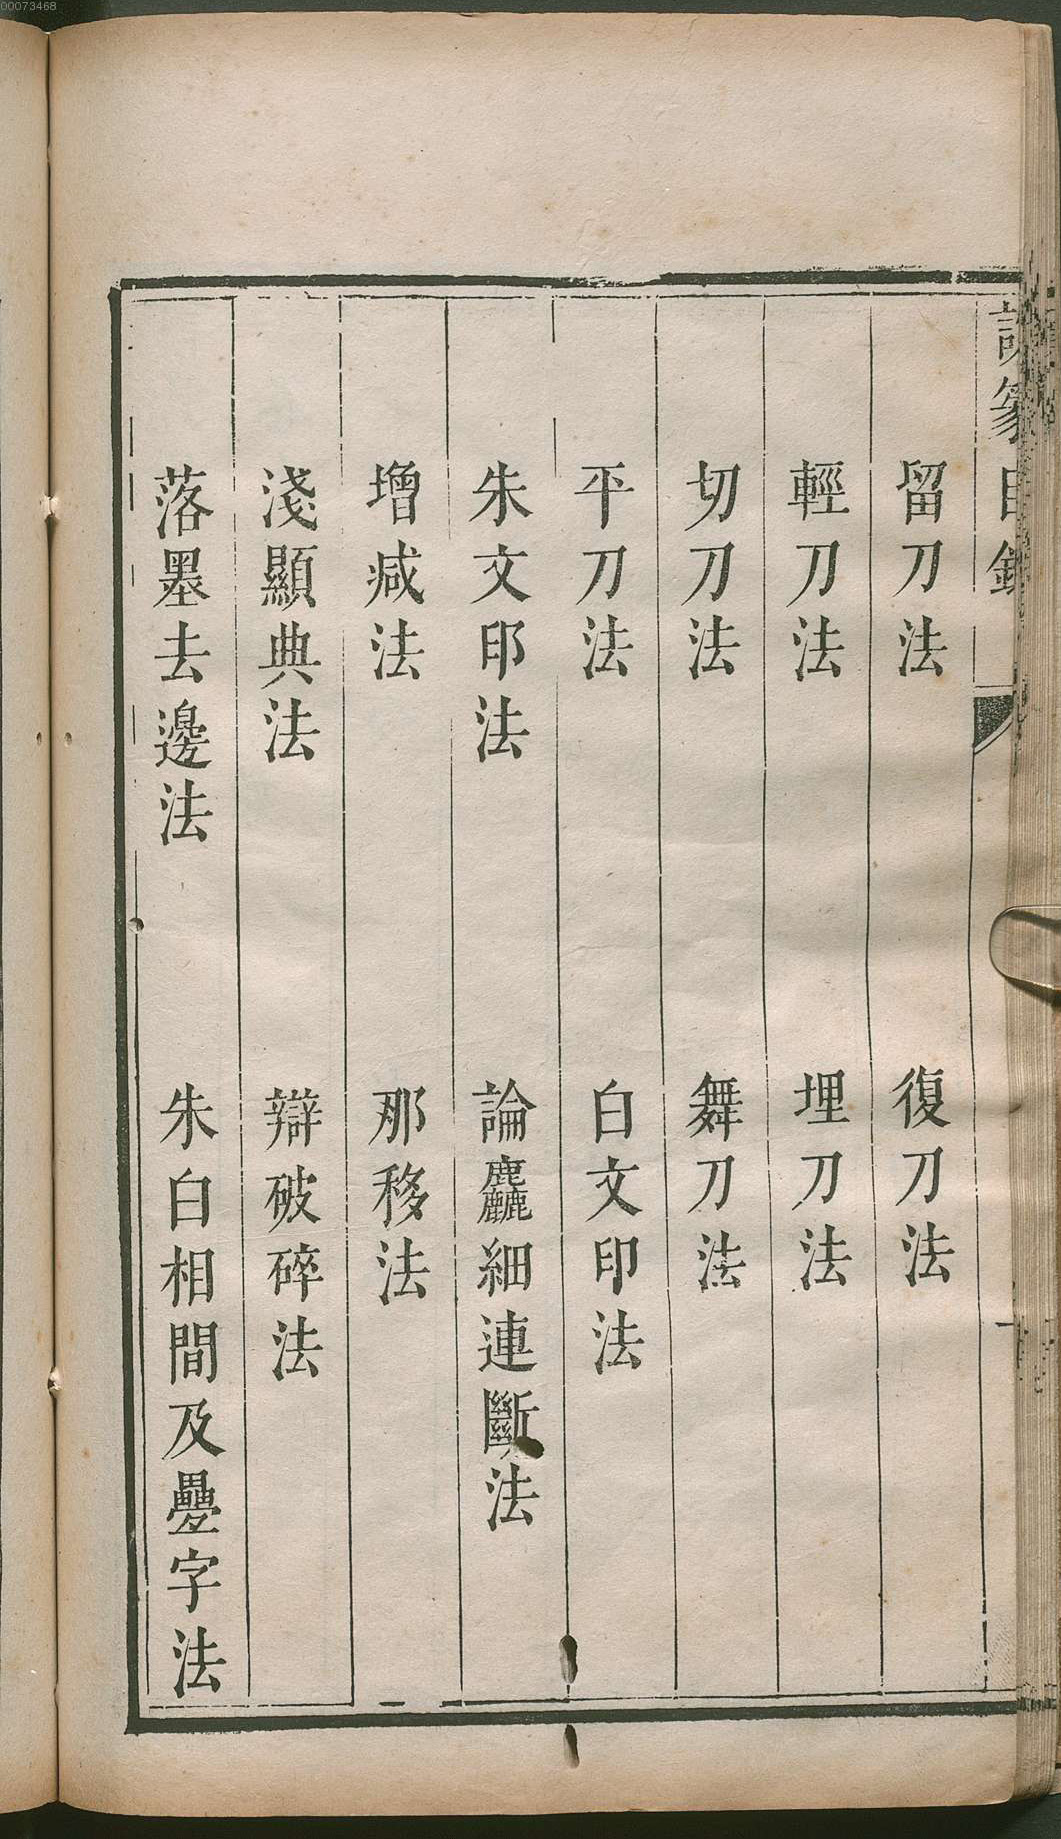 00073468
留刀法　復刀法
輕刀法　埋刀法
切刀法　舞刀法
平刀法　白文印法
朱文印法　論麤細連斷法
增减法　那移法
淺顯典法　辯破碎法
落墨去邊法　朱白相間及疊字法